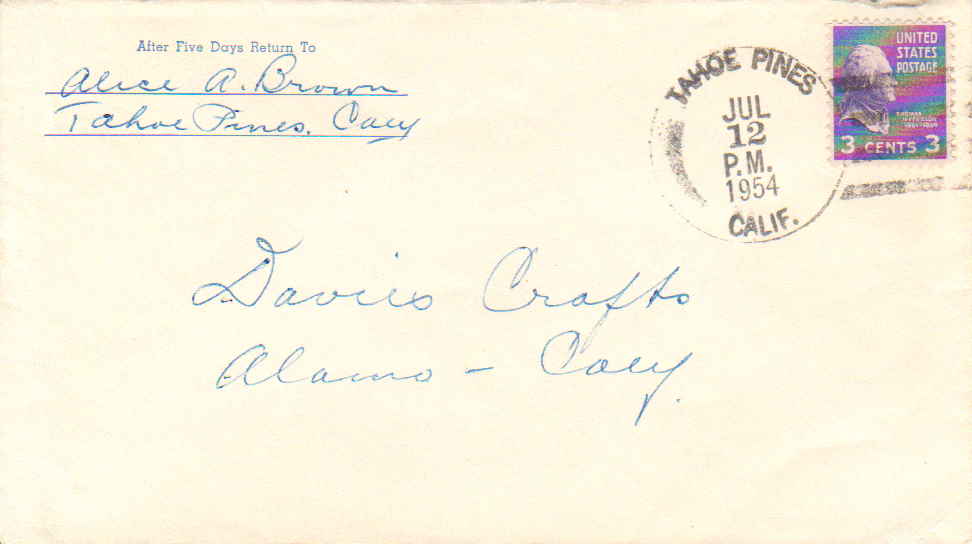 After Five Days Return To
Alice A. Brown
Tahoe Pines, Calif
TAHOE PINES
JUL
12
P.M.
1954
CALIF.
UNITED
STATES
POSTAGE
THOMAS
JEFFERSON
3 CENTS 3
Davies Crafts
Alamo - Calif.